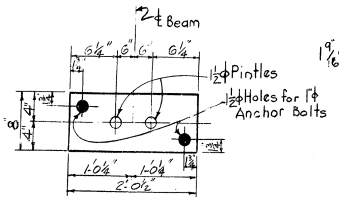 ℄ Beam
6¼" 6" 6" 6¼"
1 9/16"
1¾"
1½ϕ Pintles
1½ϕ Holes for 1"ϕ
Anchor Bolts
8"
4" 4"
1¾"
1'-0¼" 1'-0¼"
2'-0½"